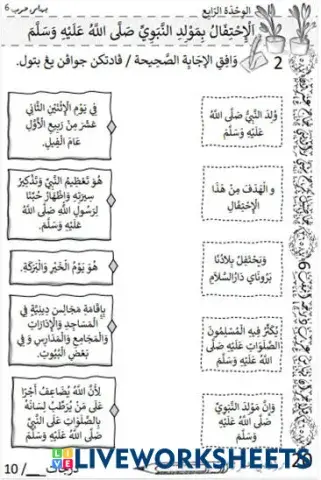 الوَحْدَة الرَّابِع
الْإِحْتِفَالُ بِمَوْلِدِ النَّبَوِيِّ صَلَّى اللَّهُ عَلَيْهِ وَسَلَّمَ
2 وَافِقِ الْإِجَابَةِ الصَّحِيحَة / ڤادنکن جواڤن يڠ بتول.
وُلِدَ النَّبِيُّ صَلَّى اللهُ
عَلَيْهِ وَسَلَّمَ
و الْهَدَفَ مِنْ هَذَا
الْإِحْتِفَالِ
وَيَحْتَفِلُ بِلَادُنَا
بَرُونَاي دَارُالسَّلَامِ
يُكْثَرُ فِيهِ الْمُسْلِمُونَ
الصَّلَوَاتِ عَلَيْهِ صَلَّى
اللَّهُ عَلَيْهِ وَسَلَّمَ
وَإِنَّ مَوْلِدَ النَّبَوِيِّ
صَلَّى اللَّهُ عَلَيْهِ
وَسَلَّمَ
فِي يَوْمِ الْإِثْنَيْنِ الثَّانِي
عَشَرَ مِنْ رَبِيعِ الْأَوَّلِ
عَامَ الْفِيلِ.
هُوَ تَعْظِيمُ النَّبِيِّ وَتَذْكِيرُ
سِيرَتِهِ وَإِظْهَارُ حُبِّنَا
لِرَسُولِ اللَّهِ صَلَّى اللَّهُ
عَلَيْهِ وَسَلَّمَ.
هُوَ يَوْمُ الْخَيْرِ وَالْبَرَكَةِ.
بِإِقَامَةِ مَجَالِسَ دِينِيَّةٍ فِي
الْمَسَاجِدِ وَالْإِدَارَاتِ
وَالْمَجَامِعِ وَالْمَدَارِسِ وَفِي
بَعْضِ الْبُيُوتِ.
لِأَنَّ اللَّهَ يُضَاعِفُ أَجْرًا
عَلَى مَنْ يُرَطِّبُ لِسَانَهُ
بِالصَّلَوَاتِ عَلَى النَّبِيِّ
صَلَّى اللَّهُ عَلَيْهِ وَسَلَّمَ
10 /
20
LIVEWORKSHEETS